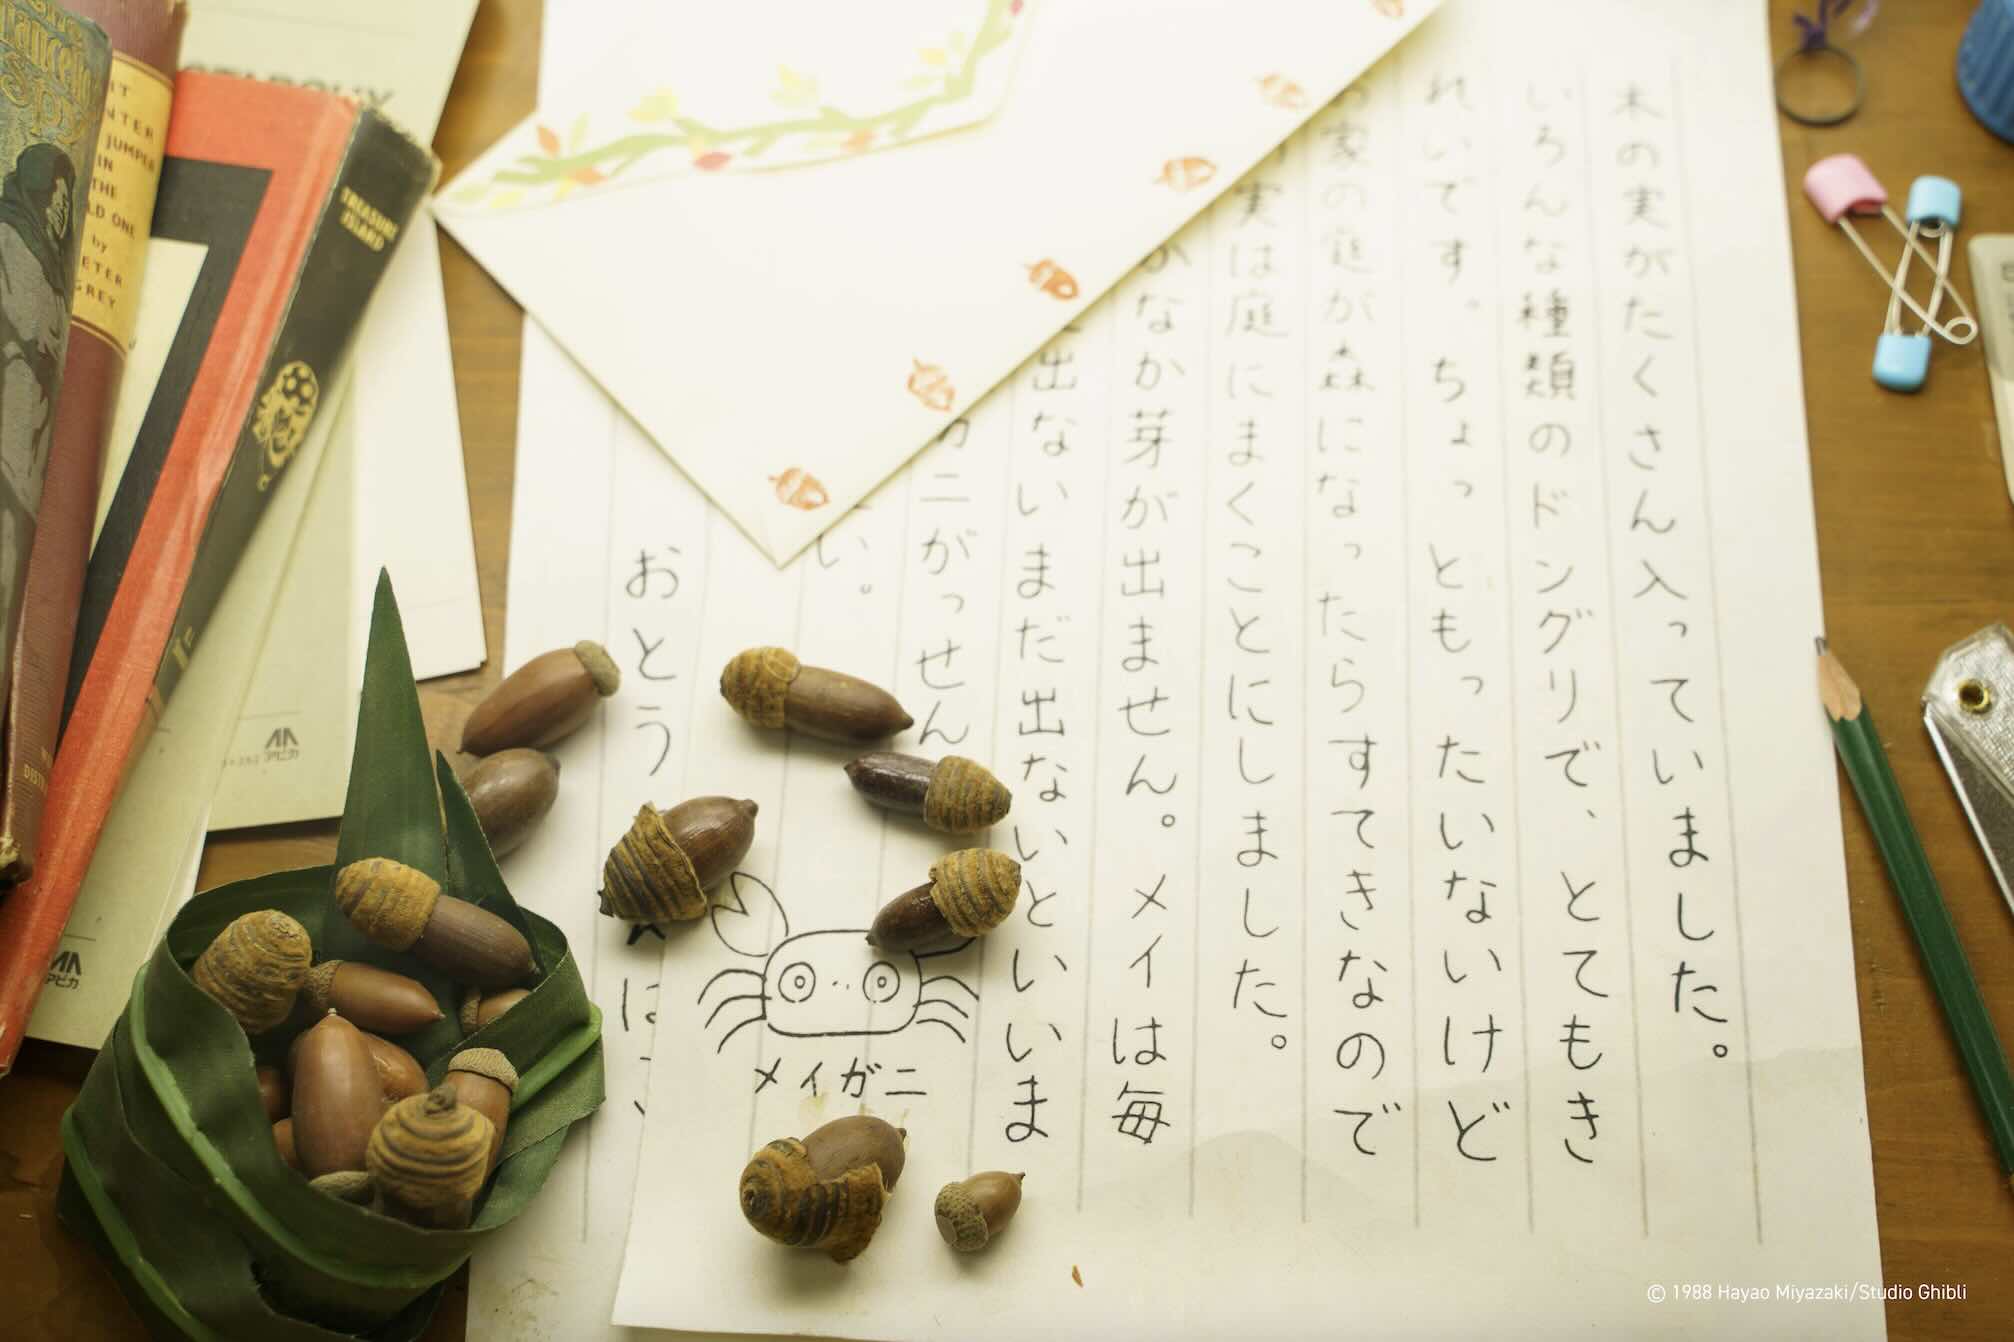 木の実がたくさん入っていました。
いろんな種類のドングリで、とてもき
れいです。ちょっともったいないけど
家の庭が森になったらすてきなので
実は庭にまくことにしました。
なかなか芽が出ません。メイは毎
出ないまだ出ないといいま
カニがっせん
い。
おとう
は
メイガニ
TREASURE
ISLAND
IN
THE
LD ONE
by
ETER
GREY
JUMPER
アピカ
アピカ
© 1988 Hayao Miyazaki/Studio Ghibli